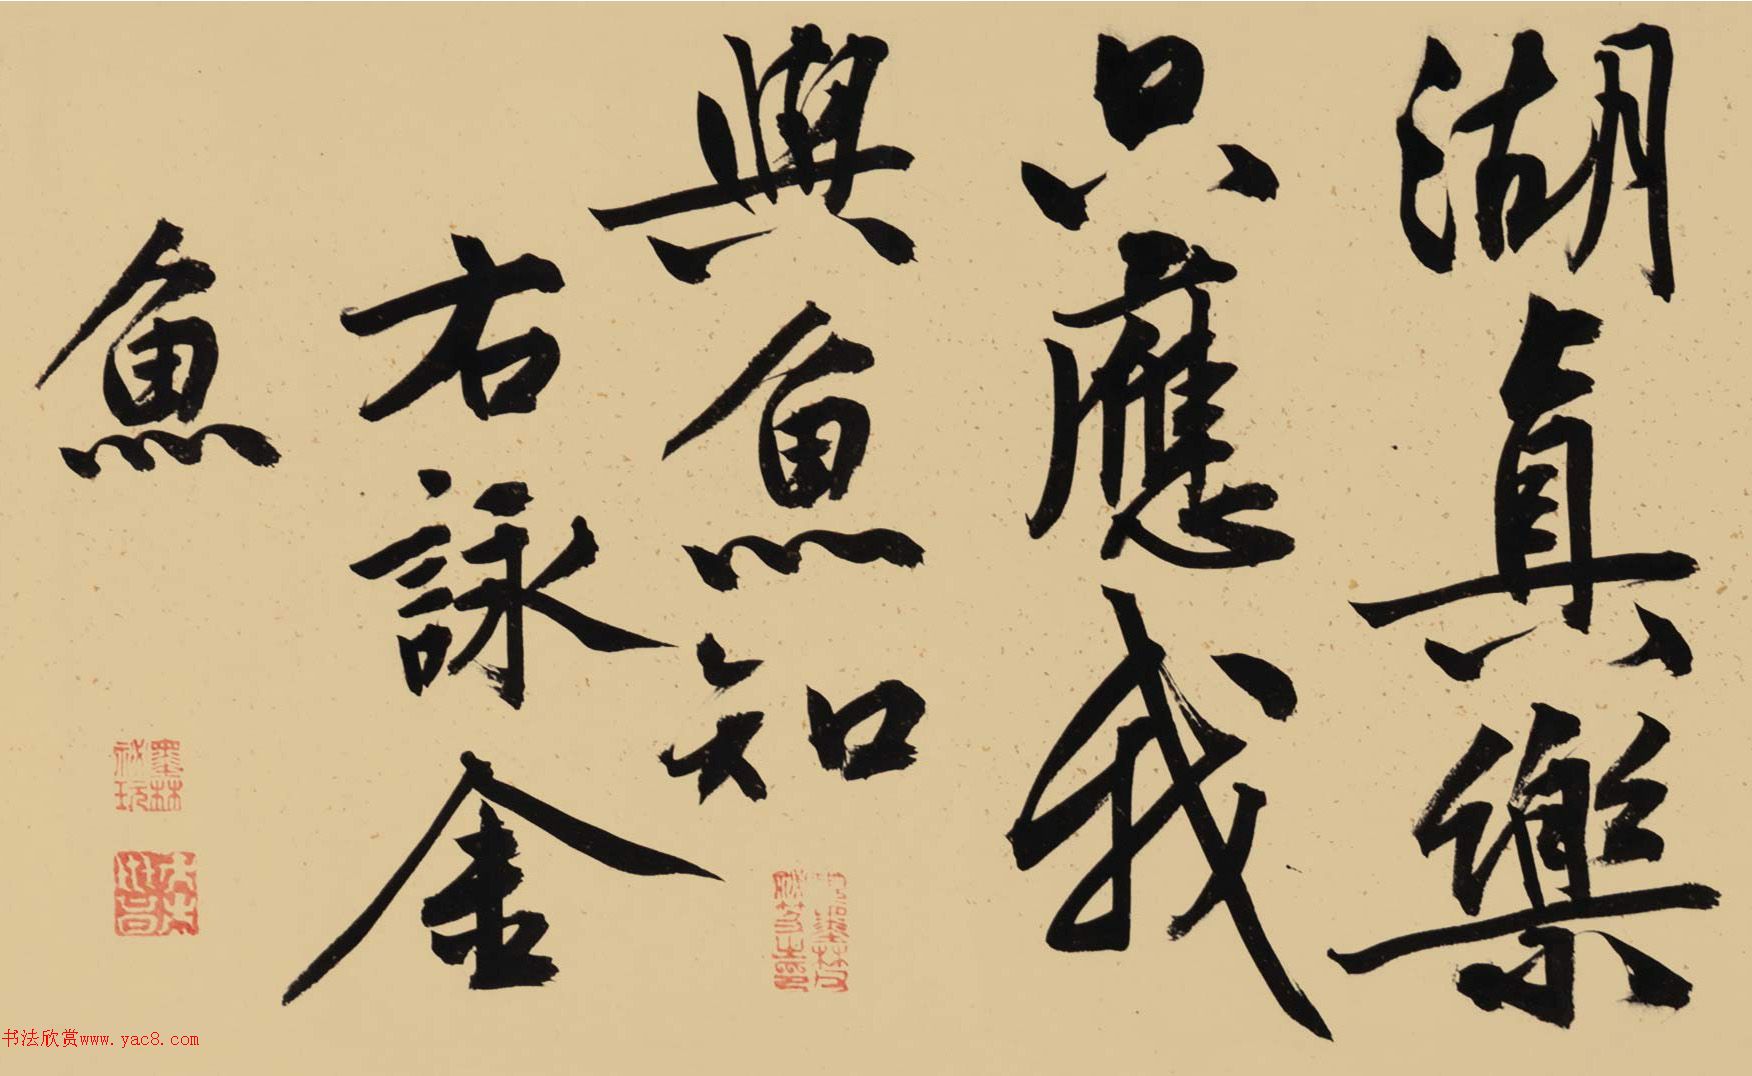 湖真樂
只應我
與魚知
右詠金
魚
墨林
祕玩
书法欣赏www.yac8.com